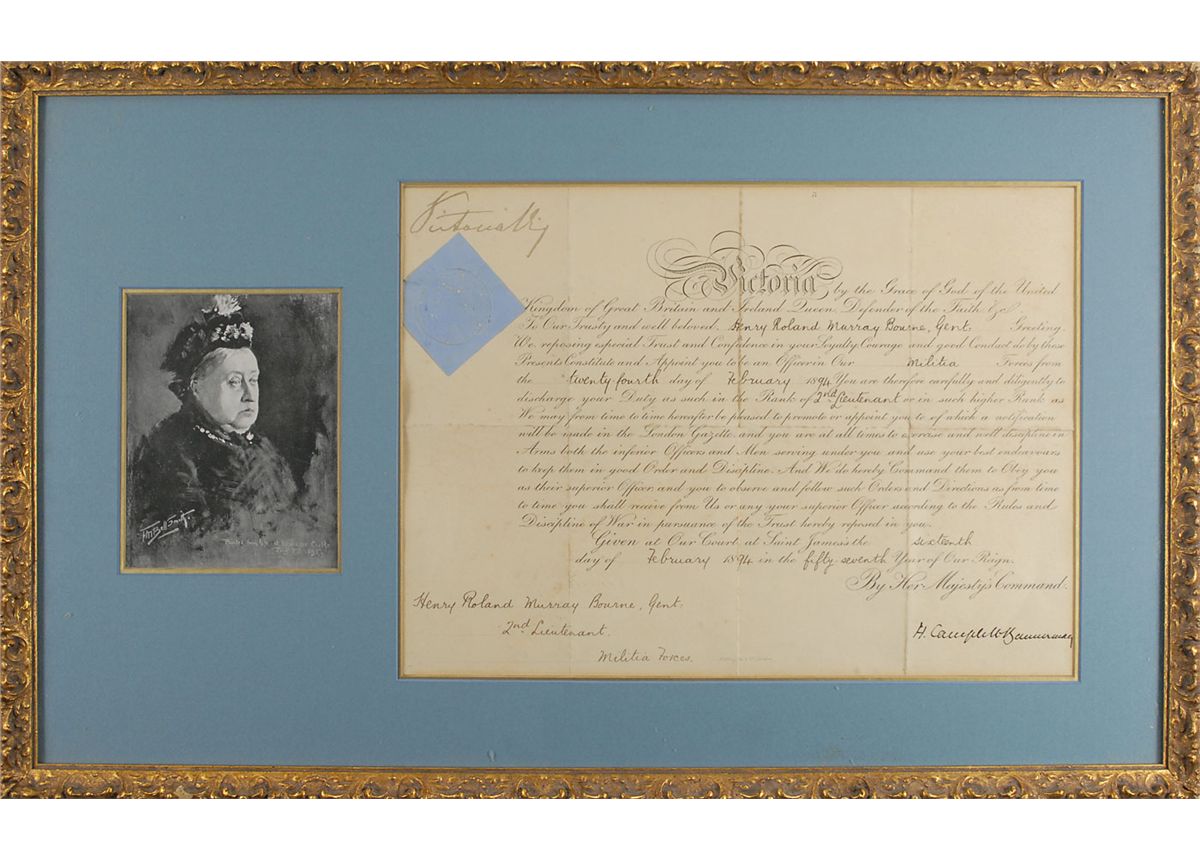 Victoria R
Victoria by the Grace of God, of the United
Kingdom of Great Britain and Ireland Queen, Defender of the Faith, &c
To Our Trusty and well beloved, Henry Roland Murray Bourne, Gent. Greeting.
We, reposing especial Trust and Confidence in your Loyalty Courage and good Conduct do by these
Presents Constitute and Appoint you to be an Officer in Our Militia Forces from
the twenty fourth day of February 1894 You are therefore carefully and diligently to
discharge your Duty as such in the Rank of 2nd Lieutenant or in such higher Rank as
We may from time to time hereafter be pleased to promote or appoint you to of which a notification
will be made in the London Gazette, and you are at all times to exercise and well discipline in
Arms both the inferior Officers and Men serving under you and use your best endeavours
to keep them in good Order and Discipline. And We do hereby Command them to Obey you
as their superior Officer, and you to observe and follow such Orders and Directions as from time
to time you shall receive from Us or any your superior Officer according to the Rules and
Discipline of War in pursuance of the Trust hereby reposed in you.
Given at Our Court at Saint James's the sixteenth
day of February 1894 in the fifty seventh Year of Our Reign.
By Her Majesty's Command.
Henry Roland Murray Bourne, Gent.
2nd Lieutenant.
Militia Forces.
H. Campbell Bannerman
F M Bell Smith